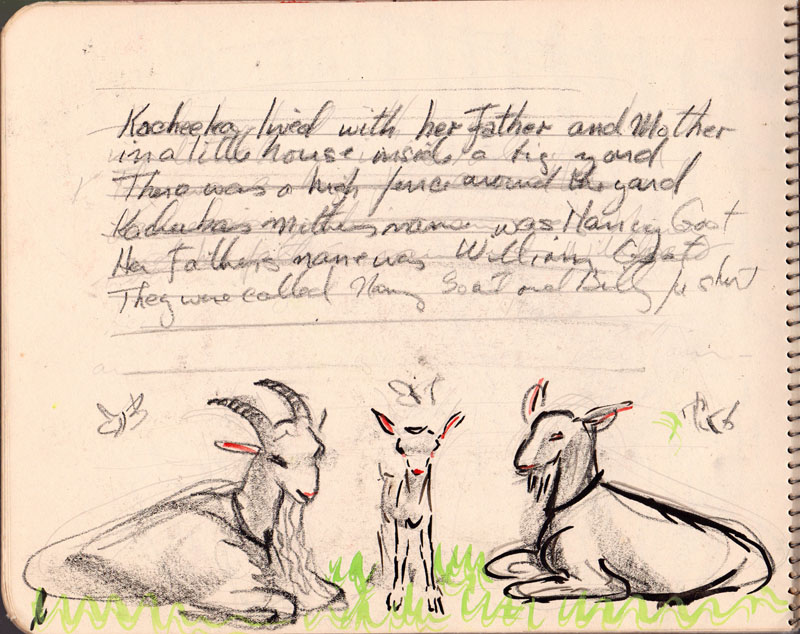 Kacheeka lived with her Father and Mother
in a little house inside a big yard
There was a high fence around the yard
Kacheekas Mothers name was Nancy Goat
Her Fathers name was William Goat
They were called Nanny Goat and Billy for short